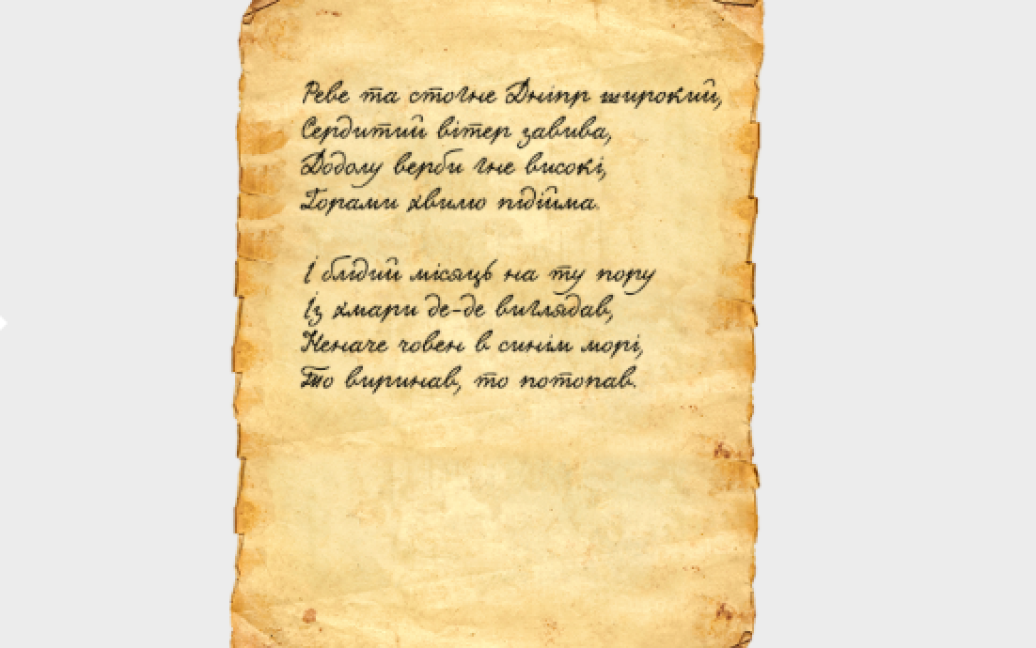 Реве та стогне Дніпр широкий,
Сердитий вітер завива,
Додолу верби гне високі,
Горами хвилю підійма.
І блідий місяць на ту пору
Із хмари де-де виглядав,
Неначе човен в синім морі,
То виринав, то потопав.